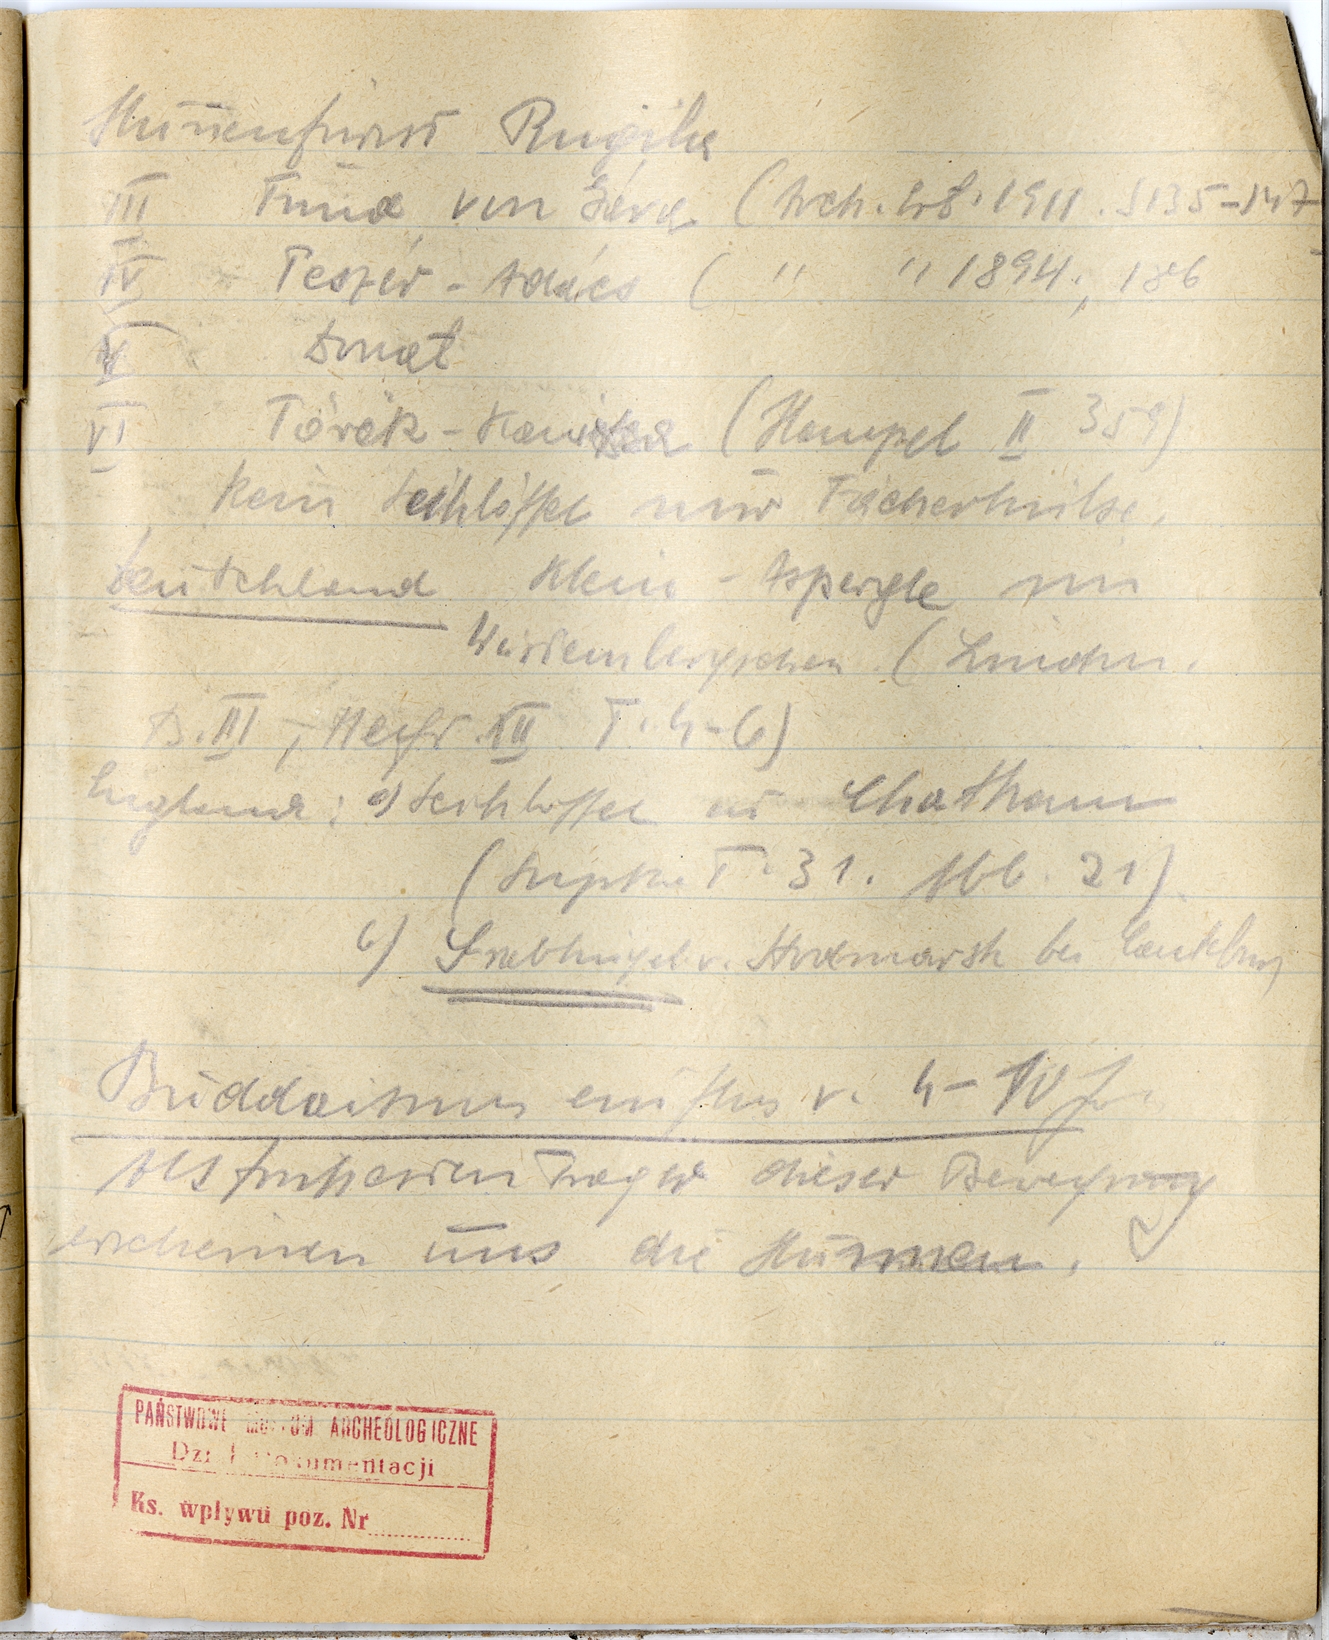 Hunnenfürst Rugila
III Fund von Gáva (Arch. Ért. 1911. S 135-147
IV Peszér-Adács ( " " 1894, 186
V) Donat
VI Török-Kanizsa (Hampel II 359)
kein Seihlöffel nur Fächerhülse.
Deutschland Klein-Aspergle im
Württembergischen. (Lindenm.
B. III, Heft XII T. 4-6)
England: a) Seihlöffel aus Chatham
(Supka T. 31. Abb. 21)
b) Grabhügel v. Stodmarsh bei Canterbury
Buddaismus einfluss v. 4- IV J.
Als frühesten Träger dieser Bewegung
erscheinen uns die Hunnen.
PAŃSTWOWE MUZEUM ARCHEOLOGICZNE
Dział Dokumentacji
Ks. wpływu poz. Nr